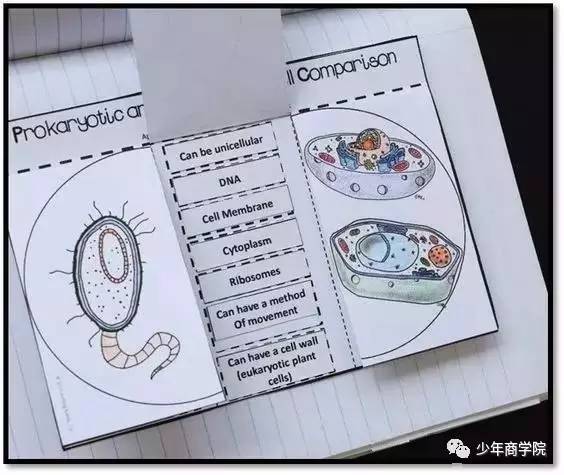 Prokaryotic an
ll Comparison
Can be unicellular
DNA
Cell Membrane
Cytoplasm
Ribosomes
Can have a method
Of movement
Can have a cell wall
(eukaryotic plant
cells)
少年商学院